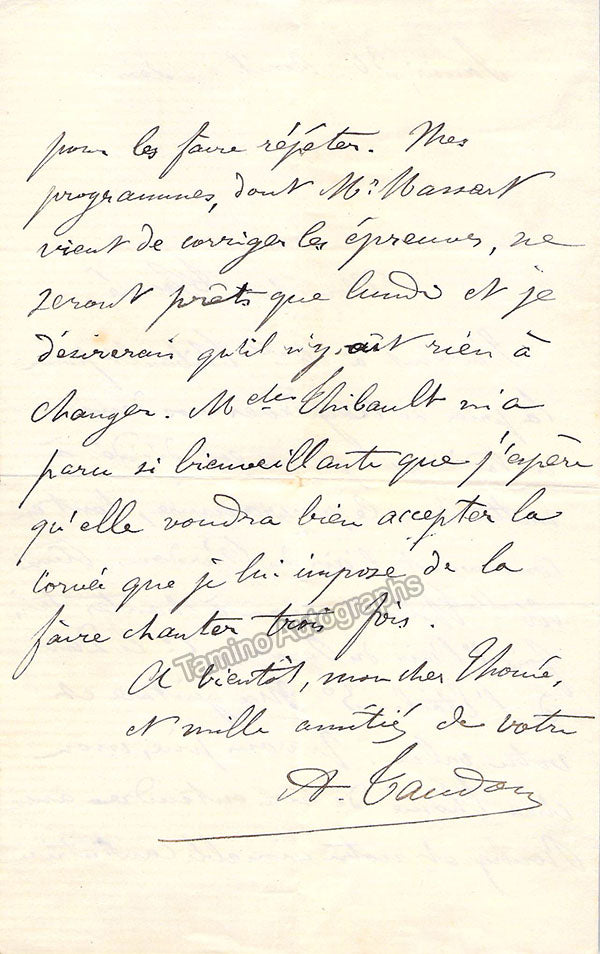 pour les faire répéter. Mes
programmes, dont Mr Massart
vient de corriger les épreuves, ne
seront prêts que lundi et je
désirerais qu'il n'y ait rien à
changer. Mde Thibault m'a
paru si bienveillante que j'espère
qu'elle voudra bien accepter la
corvée que je lui impose de la
faire chanter trois fois.
A bientôt, mon cher Thomé,
et mille amitiés de votre
A. Taudou
Tamino Autographs